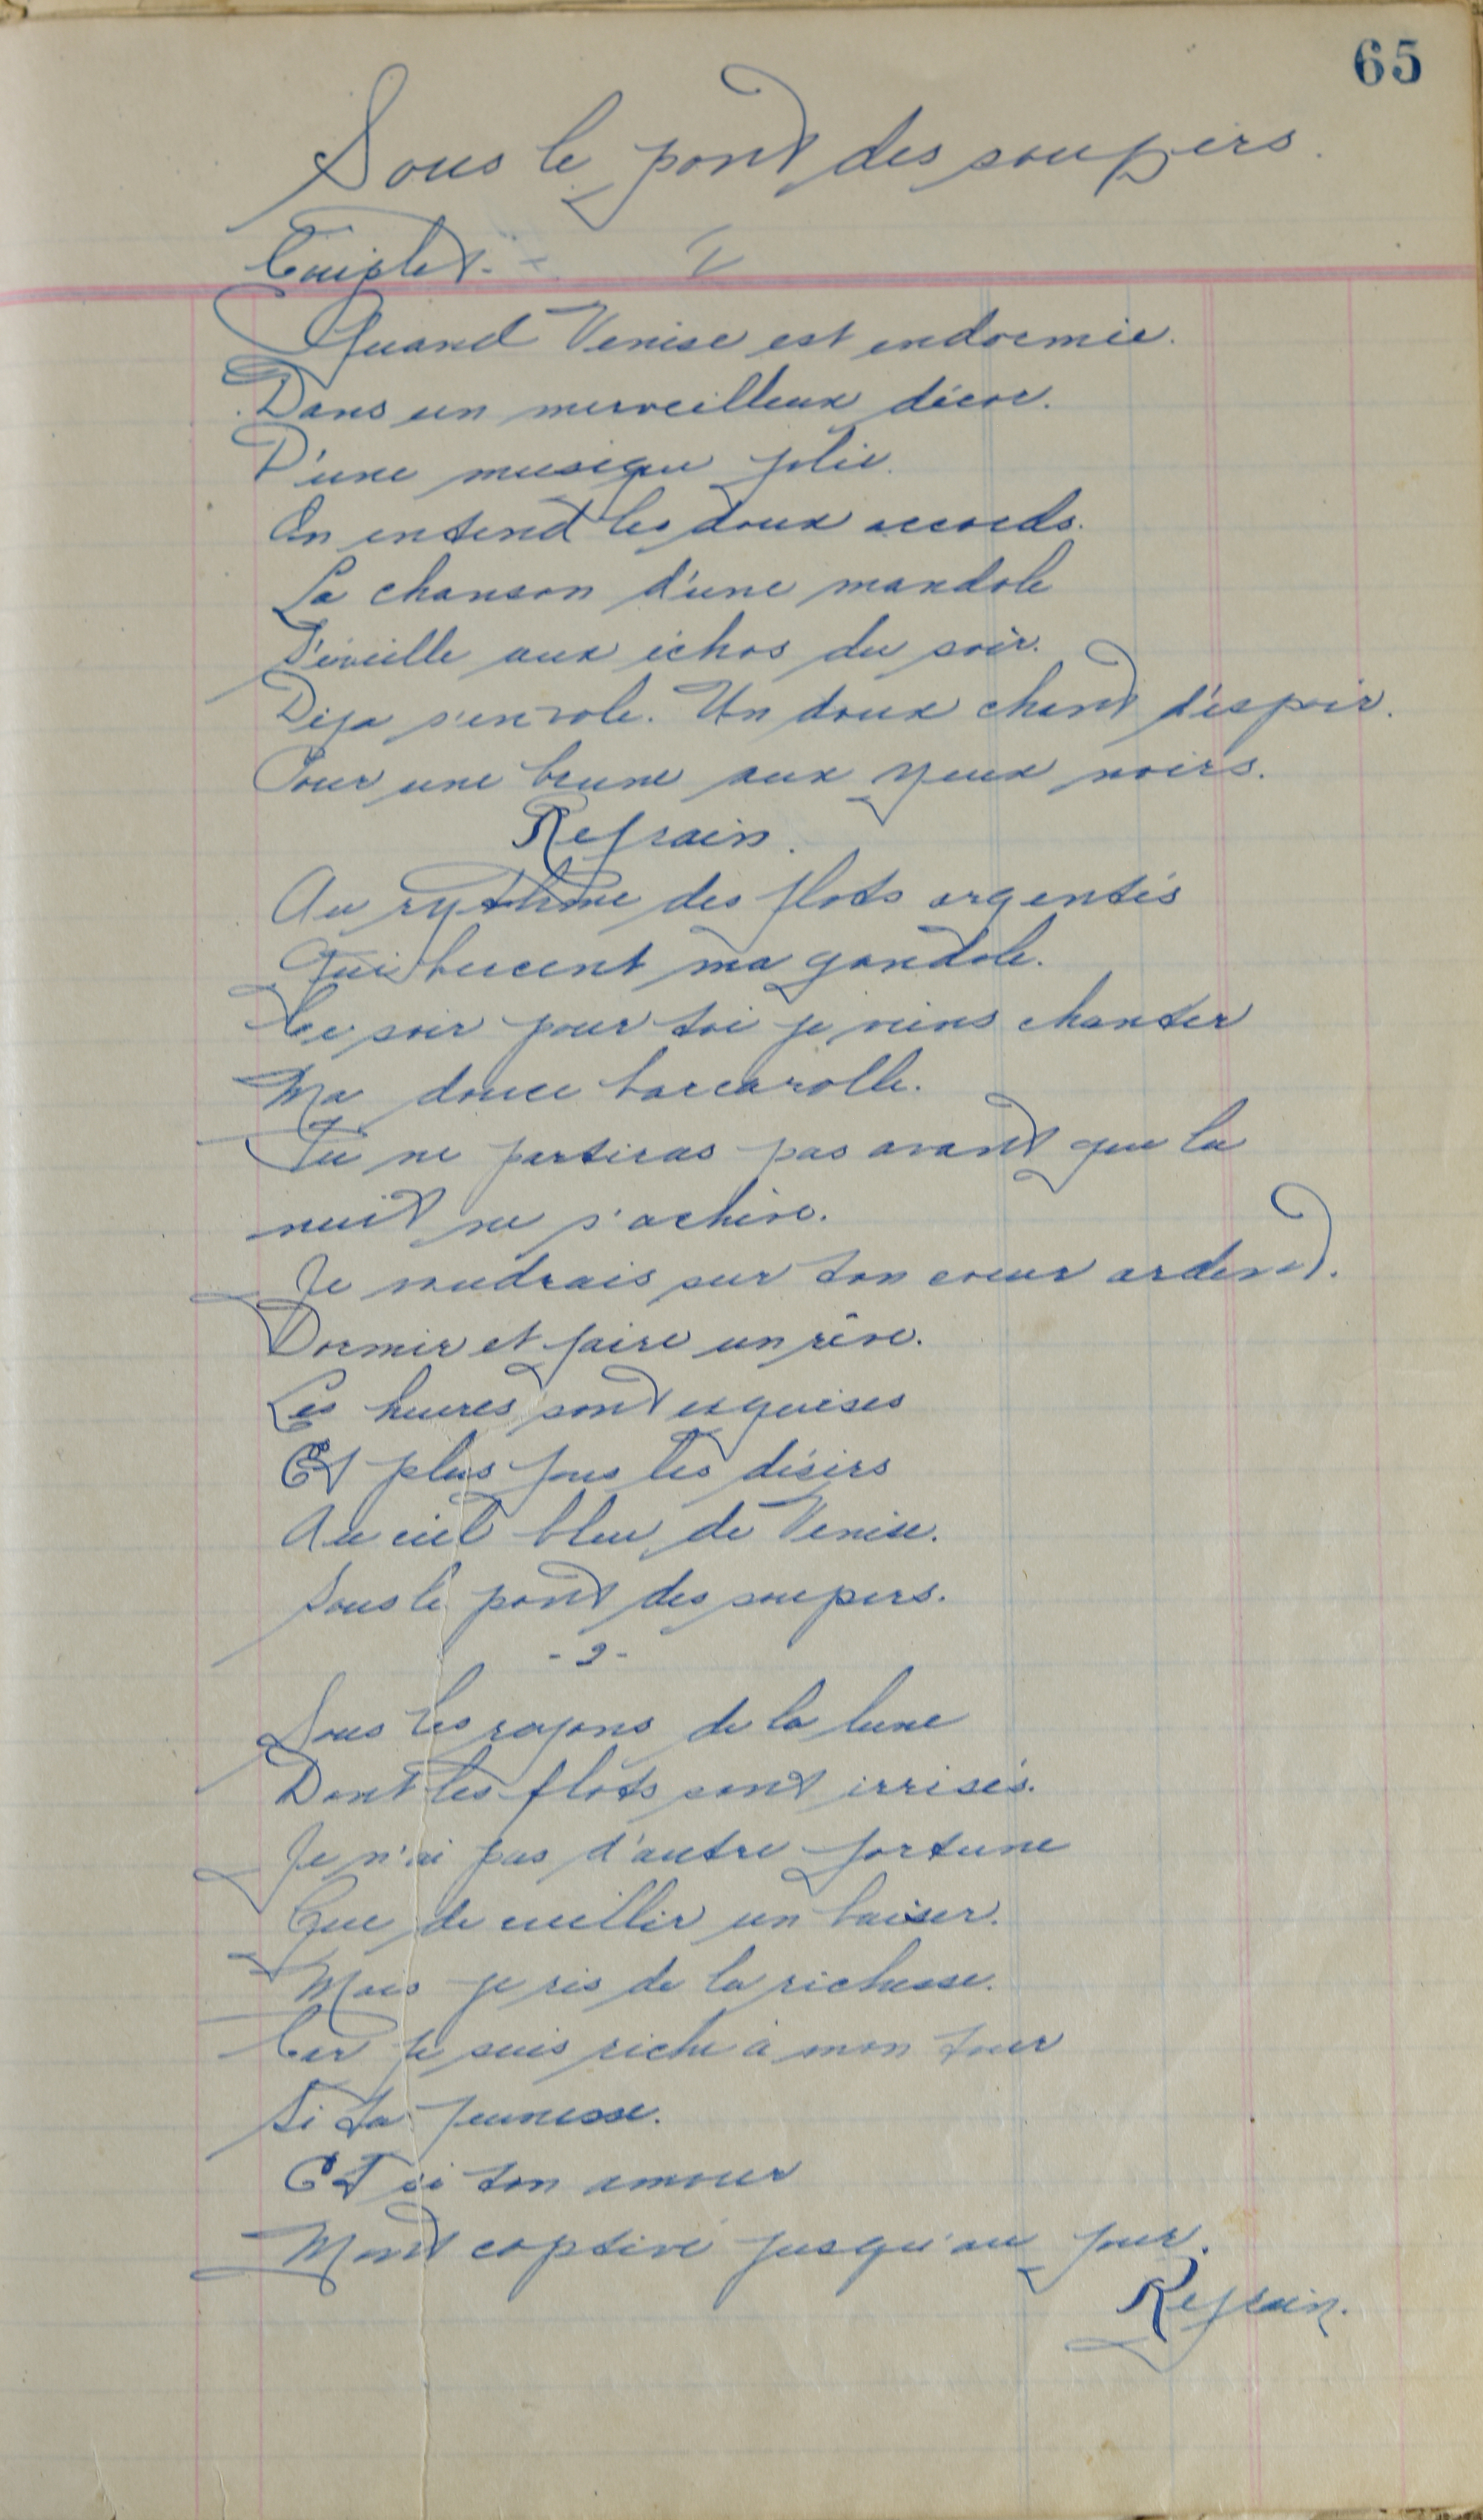 65
Sous le pont des soupirs.
Couplet. - I
Quand Venise est endormie.
Dans un merveilleux décor.
D'une musique jolie.
On entend les doux accords.
La chanson d'une mandole
S'éveille aux échos du soir.
Déja s'envole. Un doux chant d'espoir.
Pour une brune aux yeux noirs.
Refrain.
Au rythme des flots argentés
Qui bercent ma gondole.
Ce soir pour toi je viens chanter
Ma douce barcarolle.
Tu ne partiras pas avant que la
nuit ne s'achève.
Je voudrais sur ton coeur ardent.
Dormir et faire un rêve.
Les heures sont exquises
Et plus fous les désirs
Au ciel bleu de Venise.
Sous le pont des soupirs.
- 2 -
Sous les rayons de la lune
Dont les flots sont irrisés.
Je n'ai pas d'autre fortune
Que de cueillir un baiser.
Mais je ris de la richesse.
Car je suis riche à mon tour
Si ta jeunesse.
Et si ton amour
Mont captivé jusqu'au jour.
Refrain.